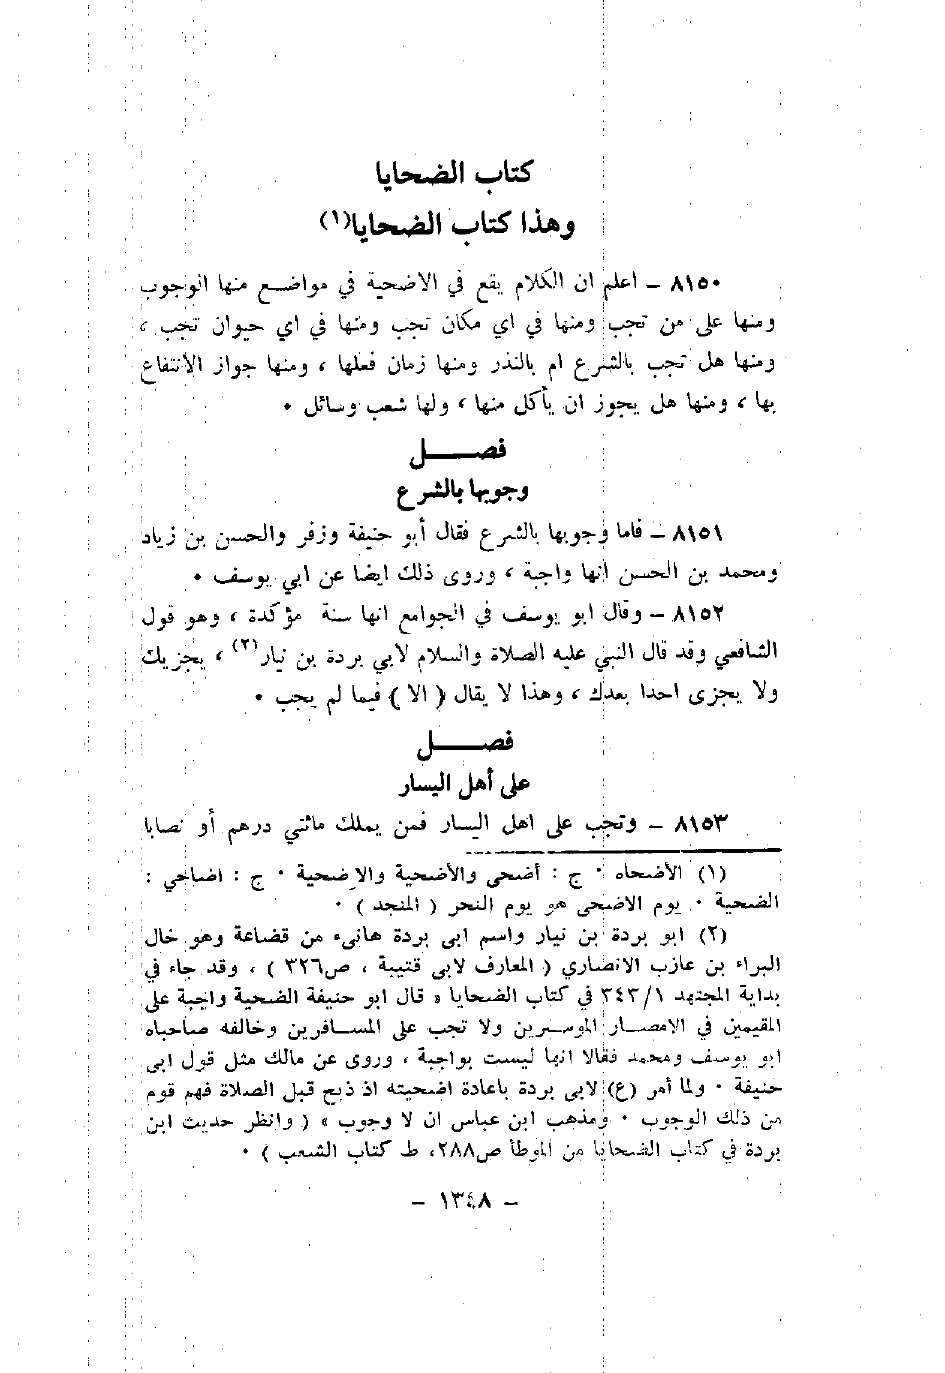 كتاب الضحايا
وهذا كتاب الضحايا(١)
٨١٥٠ - اعلم ان الكلام يقع في الاضحية في مواضع منها الوجوب
ومنها على من تجب ومنها في اي مكان تجب ومنها في اي حيوان تجب ،
ومنها هل تجب بالشرع ام بالنذر ومنها زمان فعلها ، ومنها جواز الانتفاع
بها ، ومنها هل يجوز ان يأكل منها ، ولها شعب وسائل .
فصل
وجوبها بالشرع
٨١٥١ - فاما وجوبها بالشرع فقال أبو حنيفة وزفر والحسن بن زياد
ومحمد بن الحسن انها واجبة ، وروى ذلك ايضا عن ابي يوسف .
٨١٥٢ - وقال ابو يوسف في الجوامع انها سنة مؤكدة ، وهو قول
الشافعي وقد قال النبي عليه الصلاة والسلام لابي بردة بن نيار(٢) ، يجزيك
ولا يجزى احدا بعدك ، وهذا لا يقال ( الا ) فيما لم يجب .
فصل
على أهل اليسار
٨١٥٣ - وتجب على اهل اليسار فمن يملك مائتي درهم أو نصابا
(١) الأضحاه . ج : أضحى والأضحية والاضحية . ج : اضاحي :
الضحية . يوم الاضحى هو يوم النحر ( المنجد ) .
(٢) ابو بردة بن نيار واسم ابى بردة هانىء من قضاعة وهو خال
البراء بن عازب الانصاري ( المعارف لابى قتيبة ، ص٣٢٦ ) ، وقد جاء في
بداية المجتهد ٣٤٣/١ في كتاب الضحايا « قال ابو حنيفة الضحية واجبة على
المقيمين في الامصار الموسرين ولا تجب على المسافرين وخالفه صاحباه
ابو يوسف ومحمد فقالا انها ليست بواجبة ، وروى عن مالك مثل قول ابى
حنيفة . ولما أمر (ع) لابى بردة باعادة اضحيته اذ ذبح قبل الصلاة فهم قوم
من ذلك الوجوب . ومذهب ابن عباس ان لا وجوب » ( وانظر حديث ابن
بردة في كتاب الضحايا من الموطأ ص٢٨٨، ط كتاب الشعب ) .
- ١٣٤٨ -